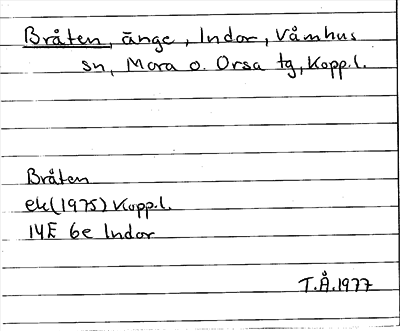 Bråten, änge, Indor, Våmhus
sn, Mora o. Orsa tg, Kopp.l.
Bråten
ek(1975) Kopp.l.
14E 6e Indor
T.Å.1977